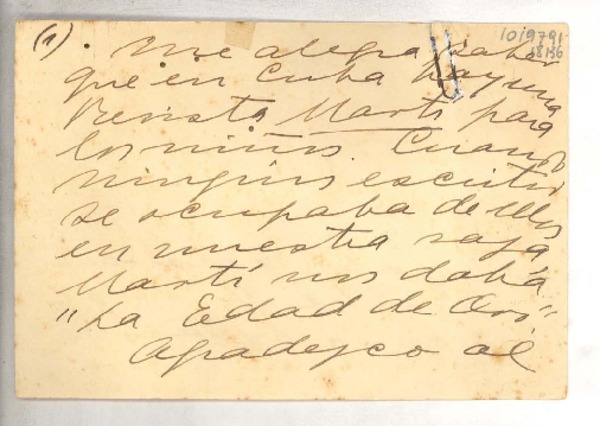 1019791
18136
(1). Me alegra saber
que en Cuba hay una
Revista Martí para
los niños. Cuando
ningún escritor
se ocupaba de ellos
en nuestra raza
Martí nos daba
"La Edad de Oro".
Agradezco al